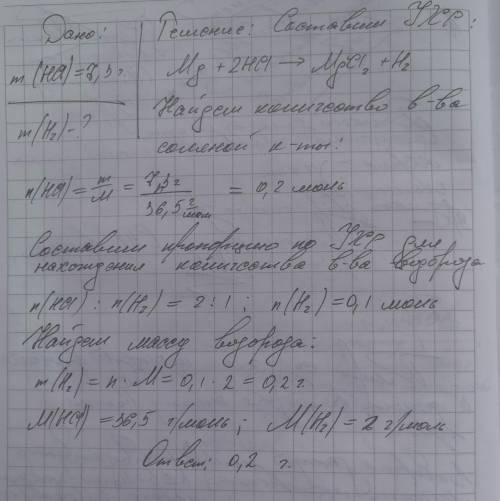 Дано:
Решение: Составим УХР:
m (HCl) = 7,3 г.
Mg + 2HCl → MgCl₂ + H₂
m (H₂) - ?
Найдем количество в-ва
соляной к-ты:
n(HCl) = m/M = 7,3 г / 36,5 г/моль = 0,2 моль
Составим пропорцию по УХР для
нахождения количества в-ва водорода
n(HCl) : n(H₂) = 2 : 1 ; n(H₂) = 0,1 моль
Найдем массу водорода:
m(H₂) = n · M = 0,1 · 2 = 0,2 г.
M(HCl) = 36,5 г/моль ; M(H₂) = 2 г/моль
Ответ: 0,2 г.